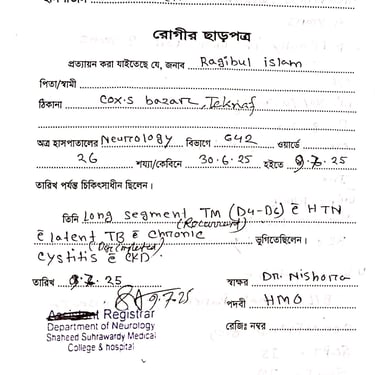 রোগীর ছাড়পত্র
প্রত্যায়ন করা যাইতেছে যে, জনাব Ragibul islam
পিতা/স্বামী
ঠিকানা Cox,s bazar, Teknaf
অত্র হাসপাতালের Neurology বিভাগে 642 ওয়ার্ডে
26 শয্যা/কেবিনে 30.6.25 হইতে 9.7.25
তারিখ পর্যন্ত চিকিৎসাধীন ছিলেন।
তিনি Long segment TM (D4-D6) c̄ HTN
(Recurrent)
c̄ latent TB c̄ Chronic ভূগিতেছিলেন।
cystitis c̄ CKD.
তারিখ 9.7.25 স্বাক্ষর Dr. Nishorra
9.7.25
পদবী HMO
রেজিঃ নম্বর
Assistant Registrar
Department of Neurology
Shaheed Suhrawardy Medical
College & hospital